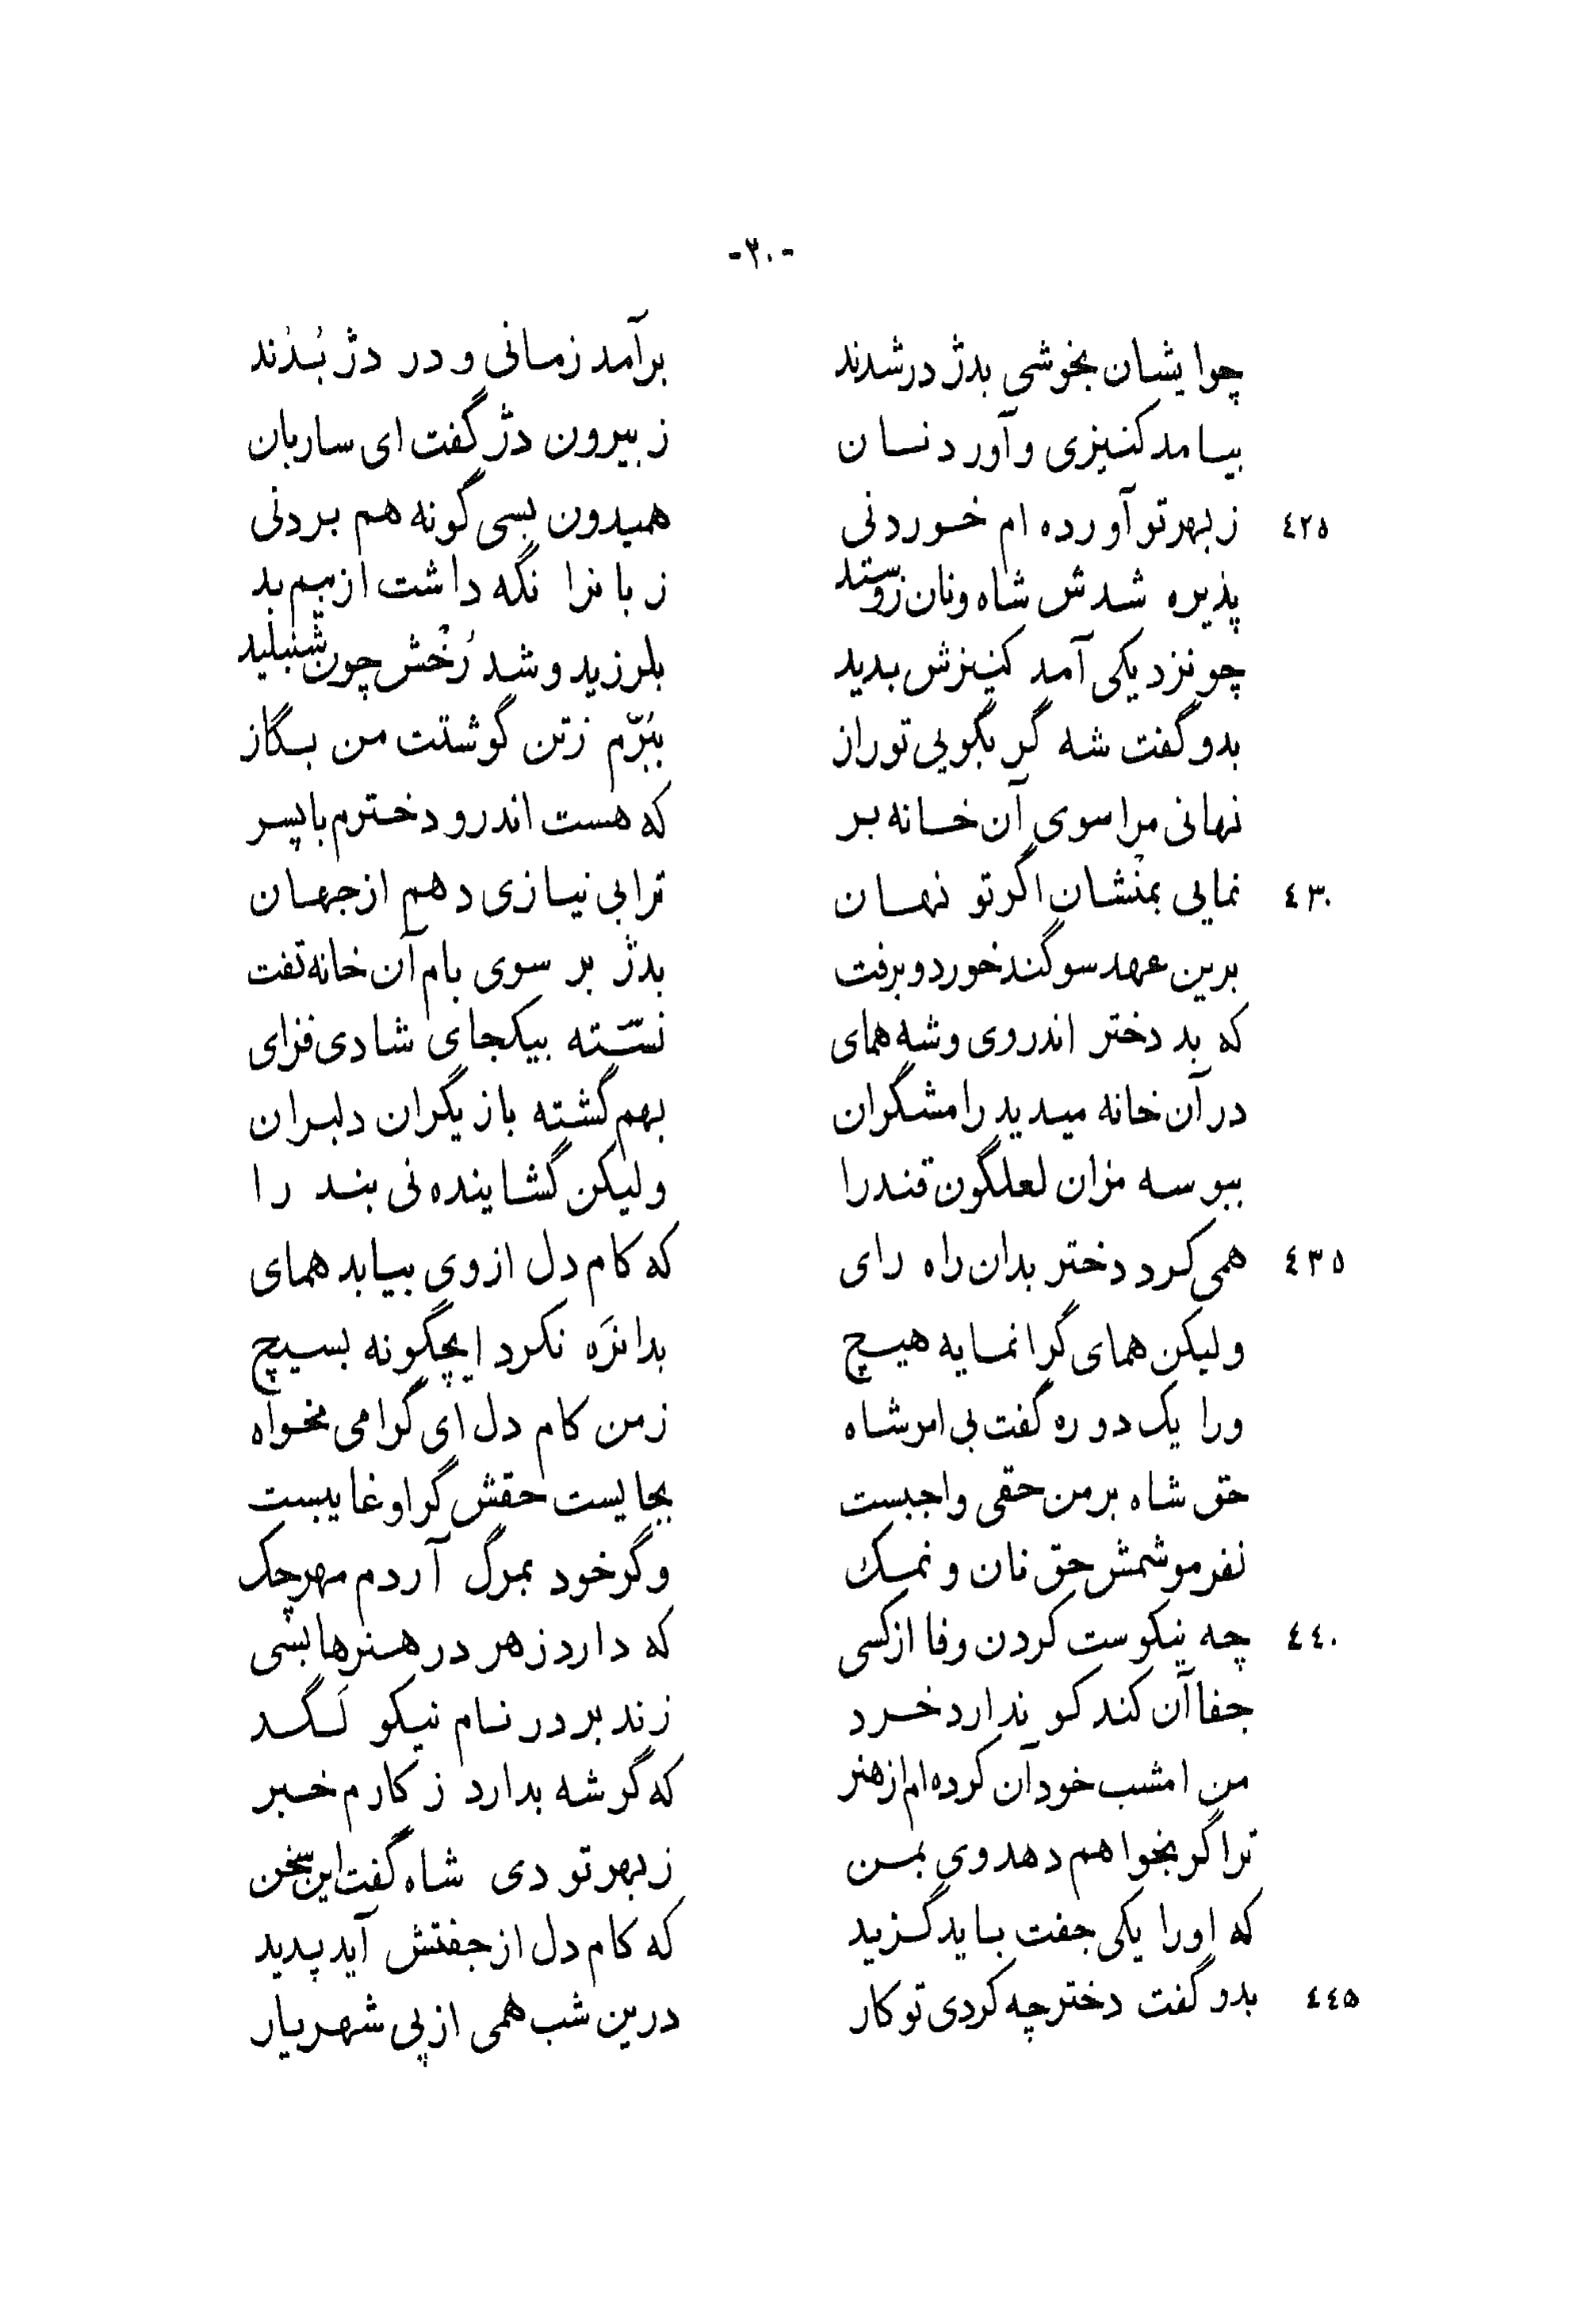 -۳۰-
چو ایشان بخوشی بدژ در شدند برآمد زمانی و در دژ بُدند
بیامد کنیزی و آورد نان ز بیرون دژ گفت ای ساربان
٤٢٥ ز بهر تو آورده ام خوردنی همیدون بسی گونه هم بردنی
پذیره شدش شاه و نان زو ستد زبانرا نگه داشت از بیم بد
چو نزدیکی آمد کنیزش بدید بلرزید و شد رُخْش چون شنبلید
بدو گفت شه گر بگویی تو راز ببُرّم ز تن گوشتت من بگاز
نهانی مرا سوی آن خانه بر که هست اندرو دخترم با پسر
٤٣٠ نمایی بمنْشان اگر تو نهان ترا بی نیازی دهم از جهان
برین عهد سوگند خورد و برفت بدژ بر سوی بام آن خانه تفت
که بد دختر اندروی و شه همای نشسته بیکجای شادی فزای
در آن خانه میدید رامشگران بهم گشته بازیگران دلبران
ببوسه مزان لعلگون قند را ولیکن گشاینده نی بند را
٤٣٥ همی کرد دختر بدان راه رای که کام دل از وی بیابد همای
ولیکن همای گرانمایه هیچ بدانرَه نکرد ایچگونه بسیچ
ورا یک دو ره گفت بی امر شاه ز من کام دل ای گرامی مخواه
حق شاه بر من حقی واجبست بجایست حقش گر او غایبست
نفرموشمش حق نان و نمک وگر خود بمرگ آردم مهر چک
٤٤٠ چه نیکوست کردن وفا از کسی که دارد ز هر در هنرها بسی
جفا آن کند کو ندارد خرد زند بر در نام نیکو لَگد
من امشب خود آن کرده ام از هنر که گر شه بدارد ز کارم خبر
ترا گر بخواهم دهد وی بمن ز بهر تو دی شاه گفت این سخن
که او را یکی جفت باید گزید که کام دل از جفتش آید پدید
٤٤٥ بدو گفت دختر چه کردی تو کار درین شب همی از پی شهریار